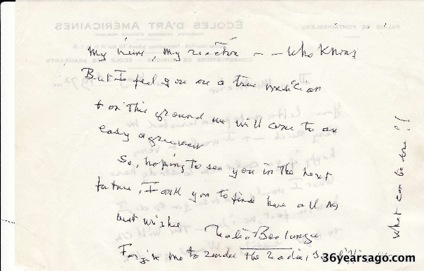 My news, my reaction -- Who Knows
But I feel you are a true musician
& on this ground we will come to an
easy agreement
So, hoping to see you in the next
future, I ask you to find here all my
best wishes
Nadia Boulanger
Forgive me to render the
what can be done!!
ÉCOLES D'ART AMÉRICAINES
36yearsago.com